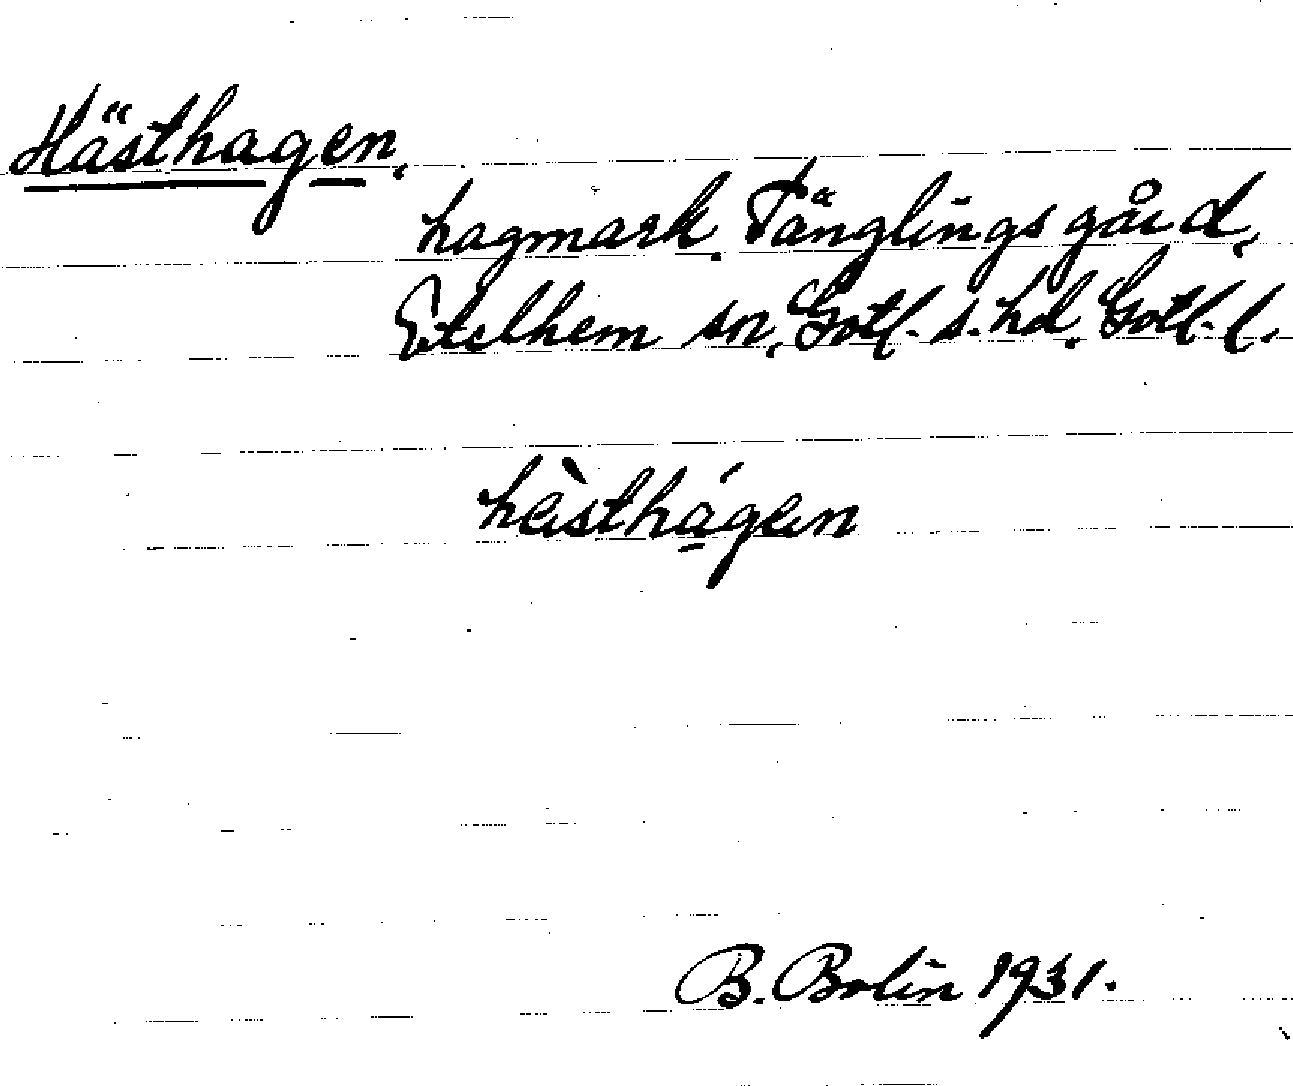 Hästhagen,
hagmark. Tänglings gård,
Etelhem sn, Gotl. s. hd, Gotl. l.
hä̀sthágän
B. Bolin 1931.